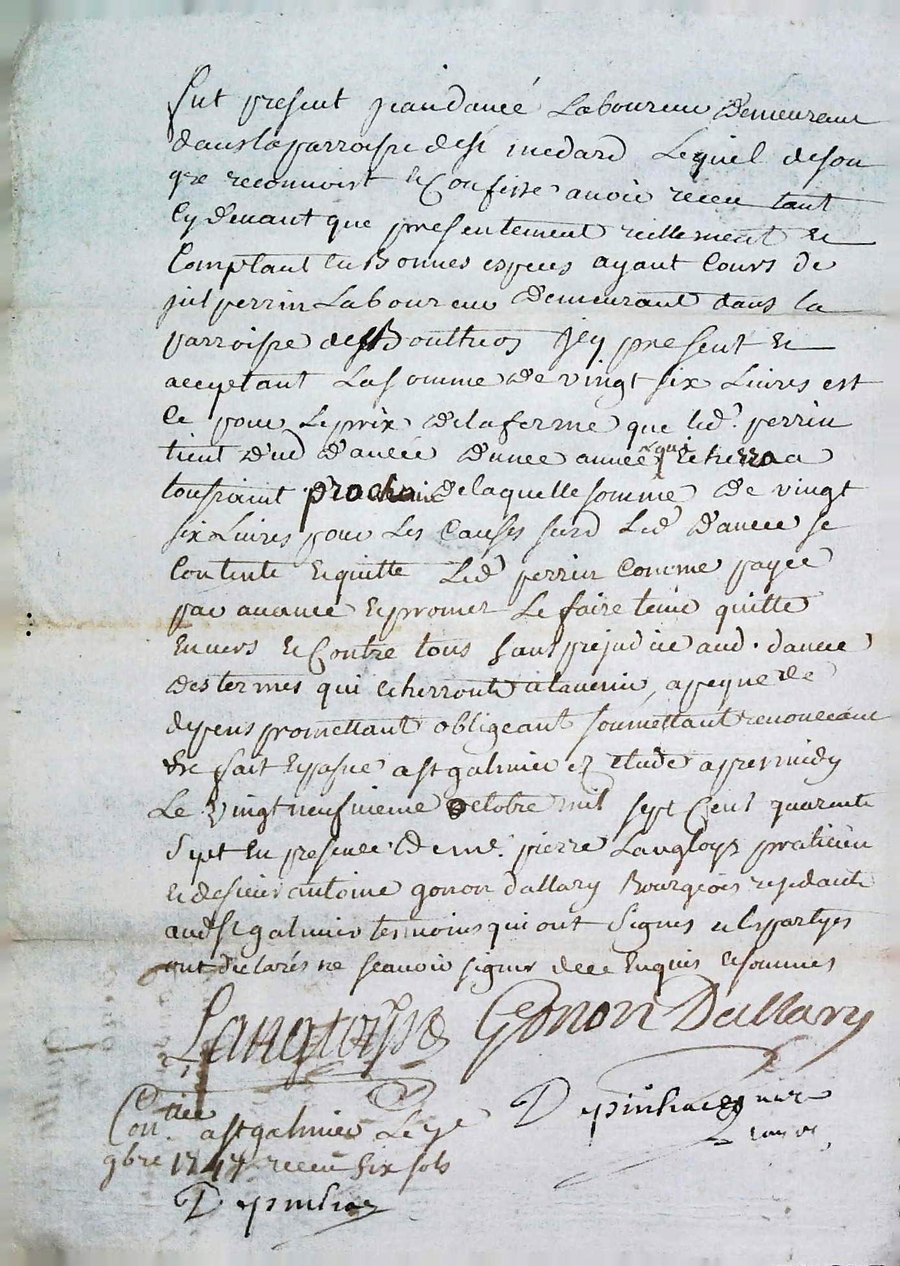 fut present jean dancé Laboureur demeurant
dans la parroisse de st medard Lequel de son
gre reconnoist et Confesse avoir receu tant
Cy devant que presentement reellement et
Comptant en bonnes especes ayant Cours de
jul perrin Laboureur demeurant dans la
parroisse de st Bonnet les oules jcy present et
acceptant La somme de vingt six Livres est
Ce pour Le prix de la ferme que led. perrin
tient dud dancé d'une année qui echerra a
toussaint prochain de laquelle somme de vingt
six Livres pour Les causes susd Led dancé se
Contente et quitte Led perrin comme payée
par avance et promet Le faire tenir quitte
Envers et Contre tous sans prejudice aud. dancé
des termes qui echerront a lavenir, a peyne de
depens promettant obligeant soumettant renonceant
&c fait et passé a st galmier ez etude apres midy
Le vingt neufvieme octobre mil sept Cent quarante
sept En presence de me. pierre Langloys praticien
et de sieur antoine gonon dallary Bourgeois residants
aud st galmier temoins qui ont signes et les partyes
ont declarés ne scavoir signer de ce Enquis et sommés
Langloys Gonon Dallary
Con.llée a st galmier Le 7e Depinhac
9bre 1747 receu six sols
Depinhac